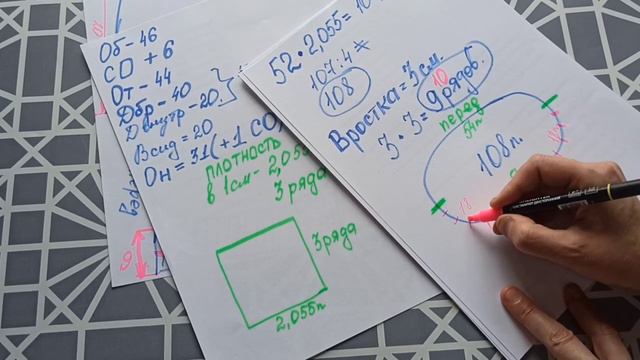 Об-46
СО + 6
От-44
Дбр-40
Двытр-20.
Всид=20
Он=31(+1 СО
ПЛОТНОСТЬ
в 1см-2,055
3 ряда
3 ряда
2,055п
52·2,055=10
107:4
108
Вростка=3см.
3·3=9рядов.
10
перед
54п
108п.